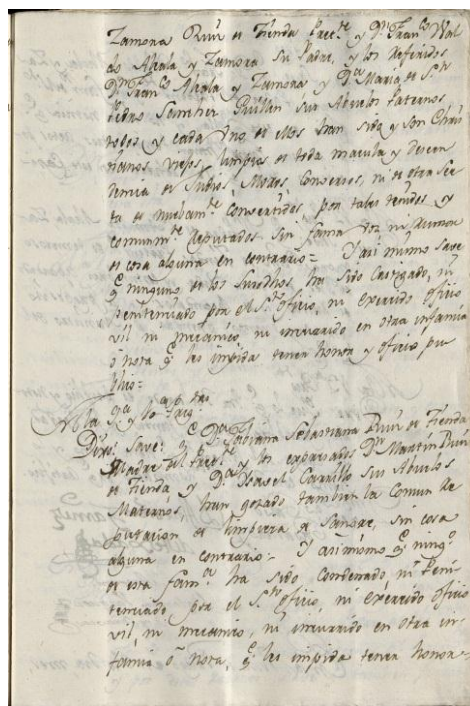 Zamora Ruiz de Tienda Pret.te y D.n Fran.co Wal
do Alcala y Zamora su Padre, y los referidos
D.n Fran.co Alcala y Zamora y D.a Maria de S.n
Pedro Sanchez Guillen sus Abuelos Paternos
todos y cada uno de ellos han sido y son Chris
tianos viejos, limpios de toda macula y decen
dencia de Judios, Moros, Conversos, ni de otra Sec
ta de nuebam.te convertidos, por tales tenidos y
comunm.te reputados sin fama voz ni rumor
de cosa alguna en contrario = Y asi mismo save
q.e ninguno de los Susodhos. ha sido Castigado, ni
penitenciado por el S.to oficio, ni exercido oficio
vil ni mecanico, ni incurrido en otra infamia
o nota q.e les impida tener honra y oficio pu
blico =
A la q.ta preg.ta
Dixo: Save q.e D.a Sebastiana Ruiz de Tienda
Madre del Pret.te y los expresados D.n Martin Ruiz
de Tienda y D.a Isavel Carrillo sus Abuelos
Maternos, han gozado tambien la Comun Re
putacion de limpieza de Sangre, sin cosa
alguna en contrario = Y asimismo q.e ning.o
de esta fam.a ha sido condenado, ni Peni
tenciado por el S.to oficio, ni exercido oficio
vil, ni mecanico, ni incurrido en otra in
famia o nota, q.e les impida tener honor =